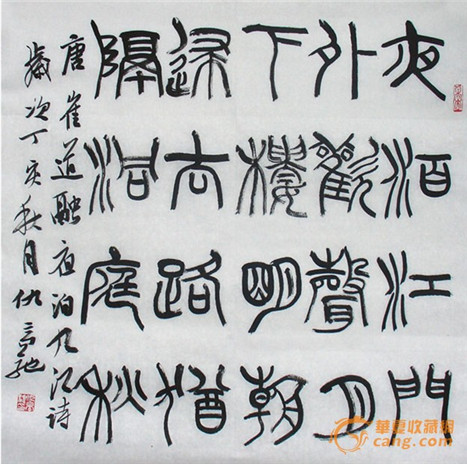 夜泊江門
外歡聲月
下樓明朝
歸去路猶
隔洞庭秋
唐崔道融夜泊九江诗
歲次丁亥秋月仇高驰
華夏收藏網
cang.com